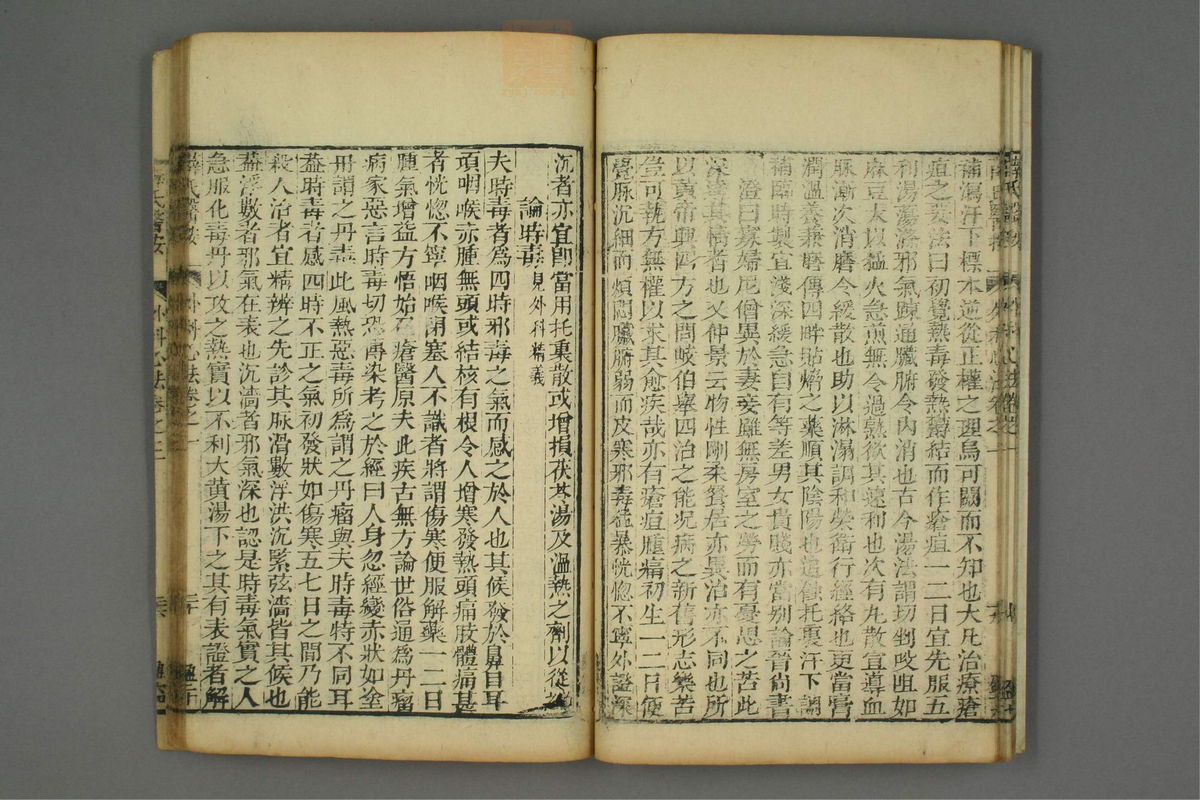 補瀉汗下標本逆從正權之理烏可闕而不知也大凡治療瘡
疽之要法曰初覺熱毒發熱鬱結而作瘡疽一二日宜先服五
利湯蕩滌邪氣疎通臟腑令內消也古今湯法謂切剉㕮咀如
麻豆大以猛火急煎無令過熟欲其速利也次有丸散宜導血
脉漸次消磨令緩散也助以淋溻調和榮衛行經絡也更當膏
潤溫養兼磨傳四畔貼焫之藥順其陰陽也追蝕托裏汗下調
補臨時製宜淺深緩急自有等差男女貴賤亦當別論晉尚書
澄曰寡婦尼僧異於妻妾雖無房室之勞而有憂思之苦此
深達其情者也又仲景云物性剛柔飡居亦異治亦不同也所
以黃帝興四方之問岐伯舉四治之能况病之新舊形志樂苦
豈可執方無權以求其愈疾哉亦有瘡疽腫痛初生一二日便
覺脉沉細而煩悶臟腑弱而皮寒邪毒猛暴恍惚不寧外證深
沉者亦宜卽當用托裏散或增損茯苓湯及溫熱之劑以從
論時毒見外科精義
夫時毒者爲四時邪毒之氣而感之於人也其候發於鼻目耳
頭咽喉赤腫無頭或結核有根令人增寒發熱頭痛肢體痛甚
者恍惚不寧咽喉閉塞人不識者將謂傷寒便服解藥一二日
腫氣增益方悟始召瘡醫原夫此疾古無方論世俗通爲丹瘤
病家惡言時毒切恐傳染考之於經曰人身忽經變赤狀如塗
丹謂之丹毒此風熱惡毒所爲謂之丹瘤與夫時毒特不同耳
蓋時毒者感四時不正之氣初發狀如傷寒五七日之間乃能
殺人治者宜精辨之先診其脉滑數浮洪沉緊弦濇皆其候也
蓋浮數者邪氣在表也沉濇者邪氣深也認是時毒氣實之人
急服化毒丹以攻之熱實以不利大黃湯下之其有表證者解
薛氏醫按
外科心法卷之二